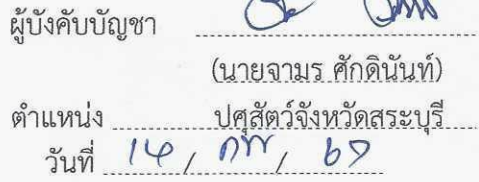 ผู้บังคับบัญชา
(นายจามร ศักดินันท์)
ตำแหน่ง ปศุสัตว์จังหวัดสระบุรี
วันที่ / กพ /